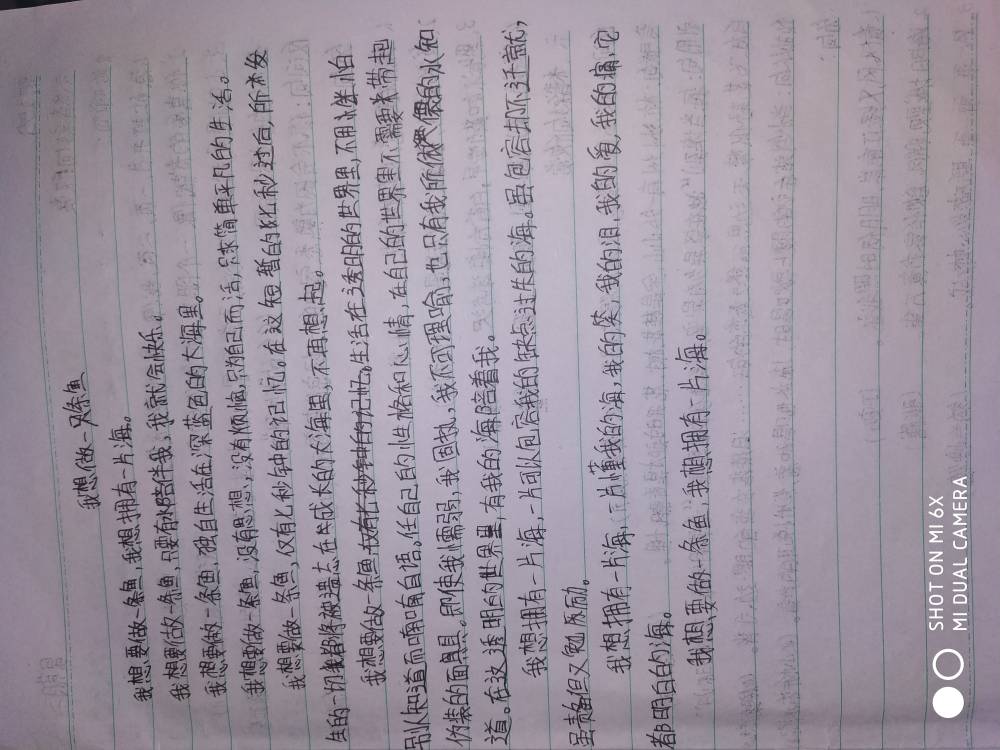 我想做一只条鱼
我想要做一条鱼，我想拥有一片海。
我想要做一条鱼，只要有水陪伴我，我就会快乐。
我想要做一条鱼，独自生活在深蓝色的大海里。
我想要做一条鱼，没有思想，没有烦恼，只为自己而活，只求简单平凡的生活。
我想要做一条鱼，仅有七秒钟的记忆。在这短暂的7秒过后，所发
生的一切都将被遗忘在成长的大海里，不再想起。
我想要做一条鱼，仅有七秒钟的记忆。生活在透明的世界里，不用惧怕
别人知道而喃喃自语。任自己的性格和心情，在自己的世界里不需要带起
伪装的面具。即使我懦弱，我固执，我不可理喻，也只有我所依偎的水知
道。在这透明的世界里，有我的海陪着我。
我想拥有一片海，一片可以包容我的缺点过失的海。虽包容却不迁就，
虽责备但又勉励。
我想拥有一片海，一片懂我的海，我的笑，我的泪，我的爱，我的痛它
都明白的海。
我想要做一条鱼，我想拥有一片海。
SHOT ON MI 6X
MI DUAL CAMERA